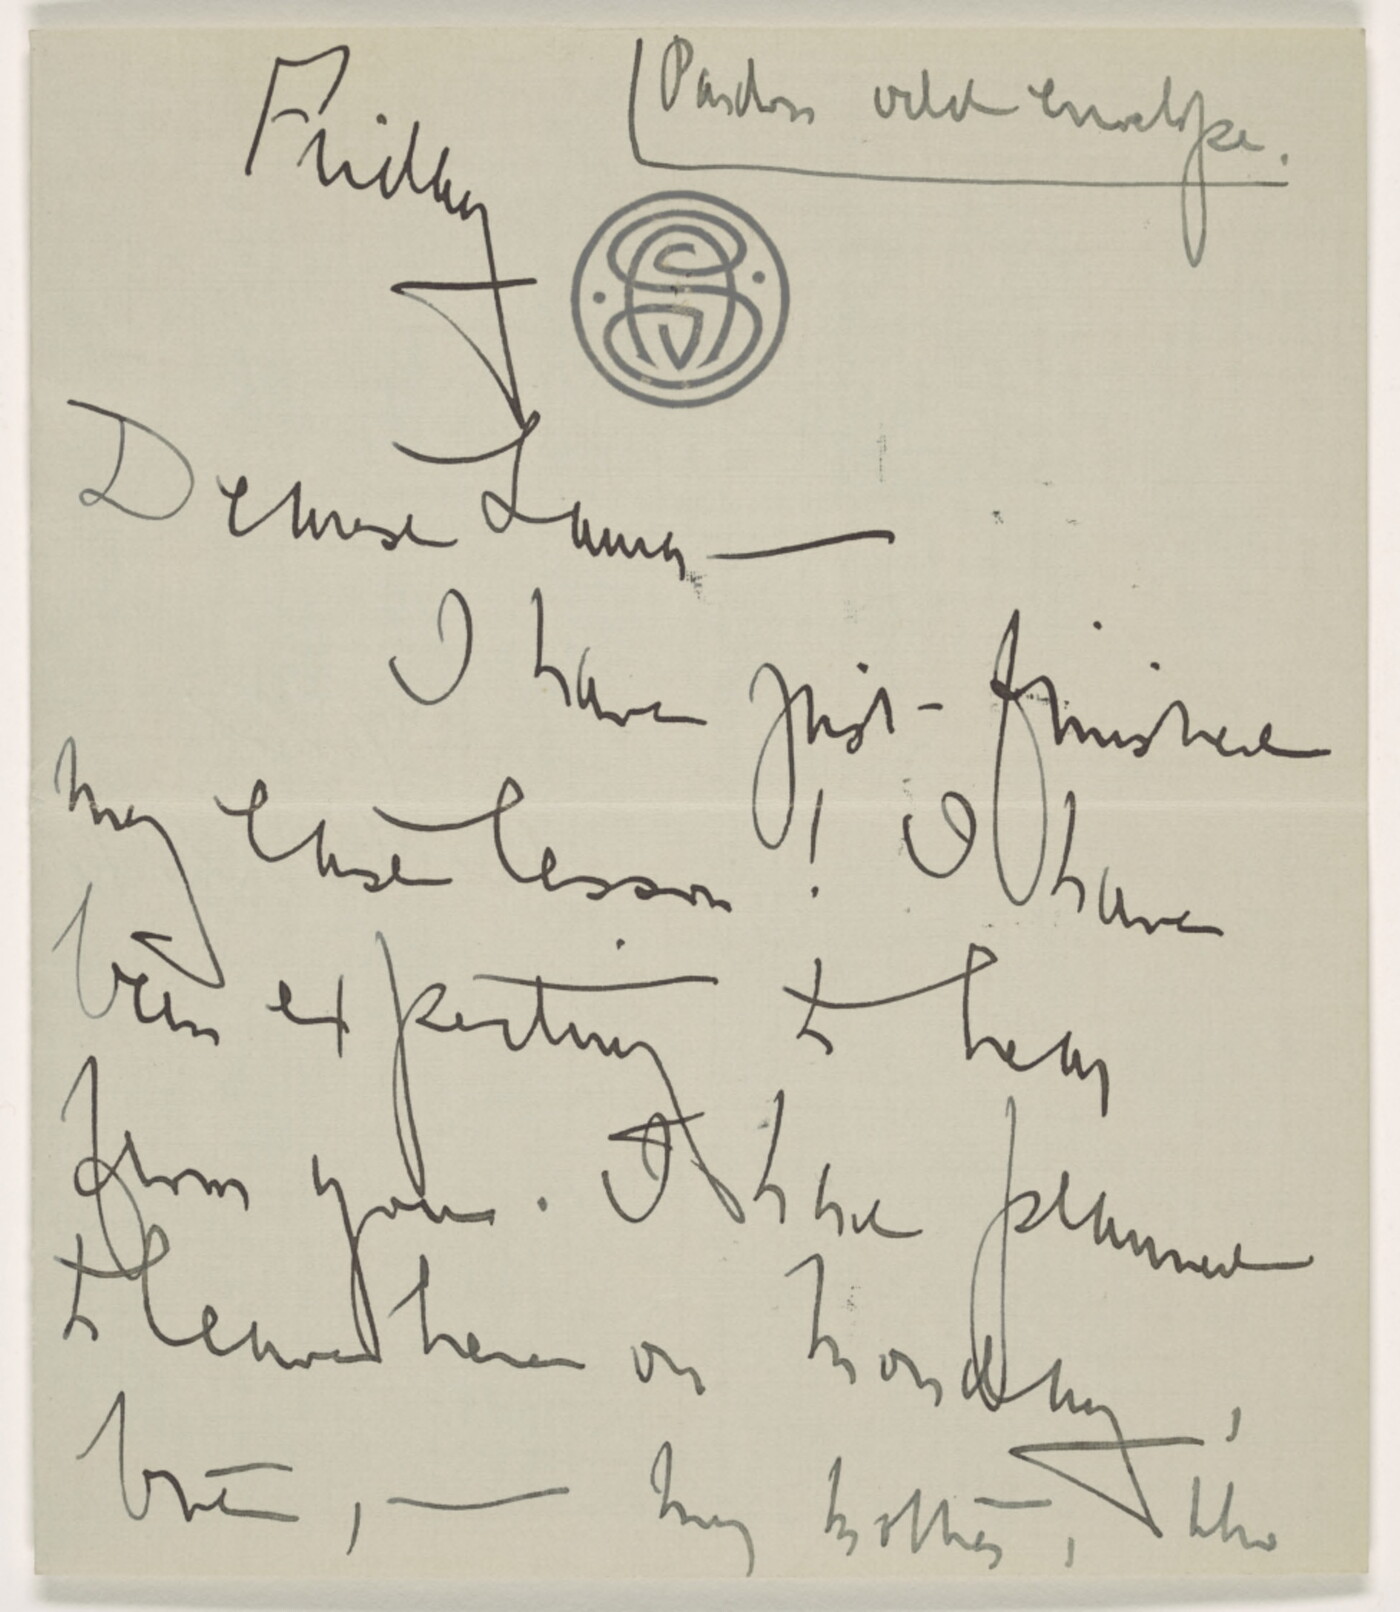 [Pardon odd envelope.
Friday
Dearest Laura —
I have just finished
my last lesson! I have
been expecting to hear
from you. I had planned
to leave here on Monday,
but, — my mother, who